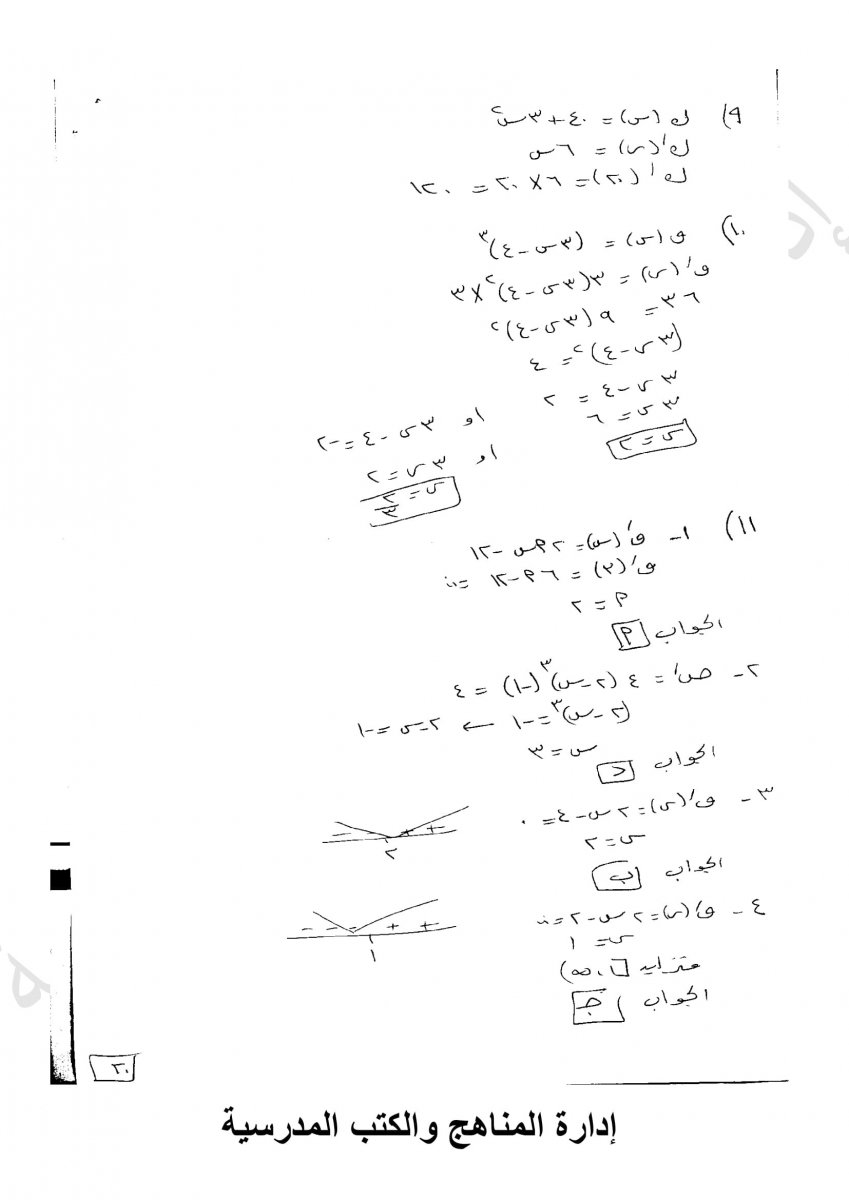 ٩) ك(س) = ٤٠ + ٣س٢
ك/(س) = ٦س
ك/(٢٠) = ٦ × ٢٠ = ١٢٠
١٠) ق(س) = (٣س - ٤)٣
ق/(س) = ٣(٣س - ٤)٢ × ٣
٣٦ = ٩(٣س - ٤)٢
(٣س - ٤)٢ = ٤
٣س - ٤ = ٢ او ٣س - ٤ = -٢
٣س = ٦ او ٣س = ٢
س = ٢ س = ٢/٣
١١) ١- ق/(س) = ٢مس - ١٢
ق/(٣) = ٦م - ١٢ = ٠
م = ٢
الجواب م
٢- ص/ = ٤(٢ - س)٣(-١) = ٤
(٢ - س)٣ = -١ ← ٢ - س = -١
س = ٣
الجواب د
٣- ق/(س) = ٢س - ٤ = ٠
س = ٢
- - + +
٢
الجواب ب
٤- ق/(س) = ٢س - ٢ = ٠
س = ١
- - - + +
١
متزايد [١، ∞)
الجواب جـ
٣٠
إدارة المناهج والكتب المدرسية